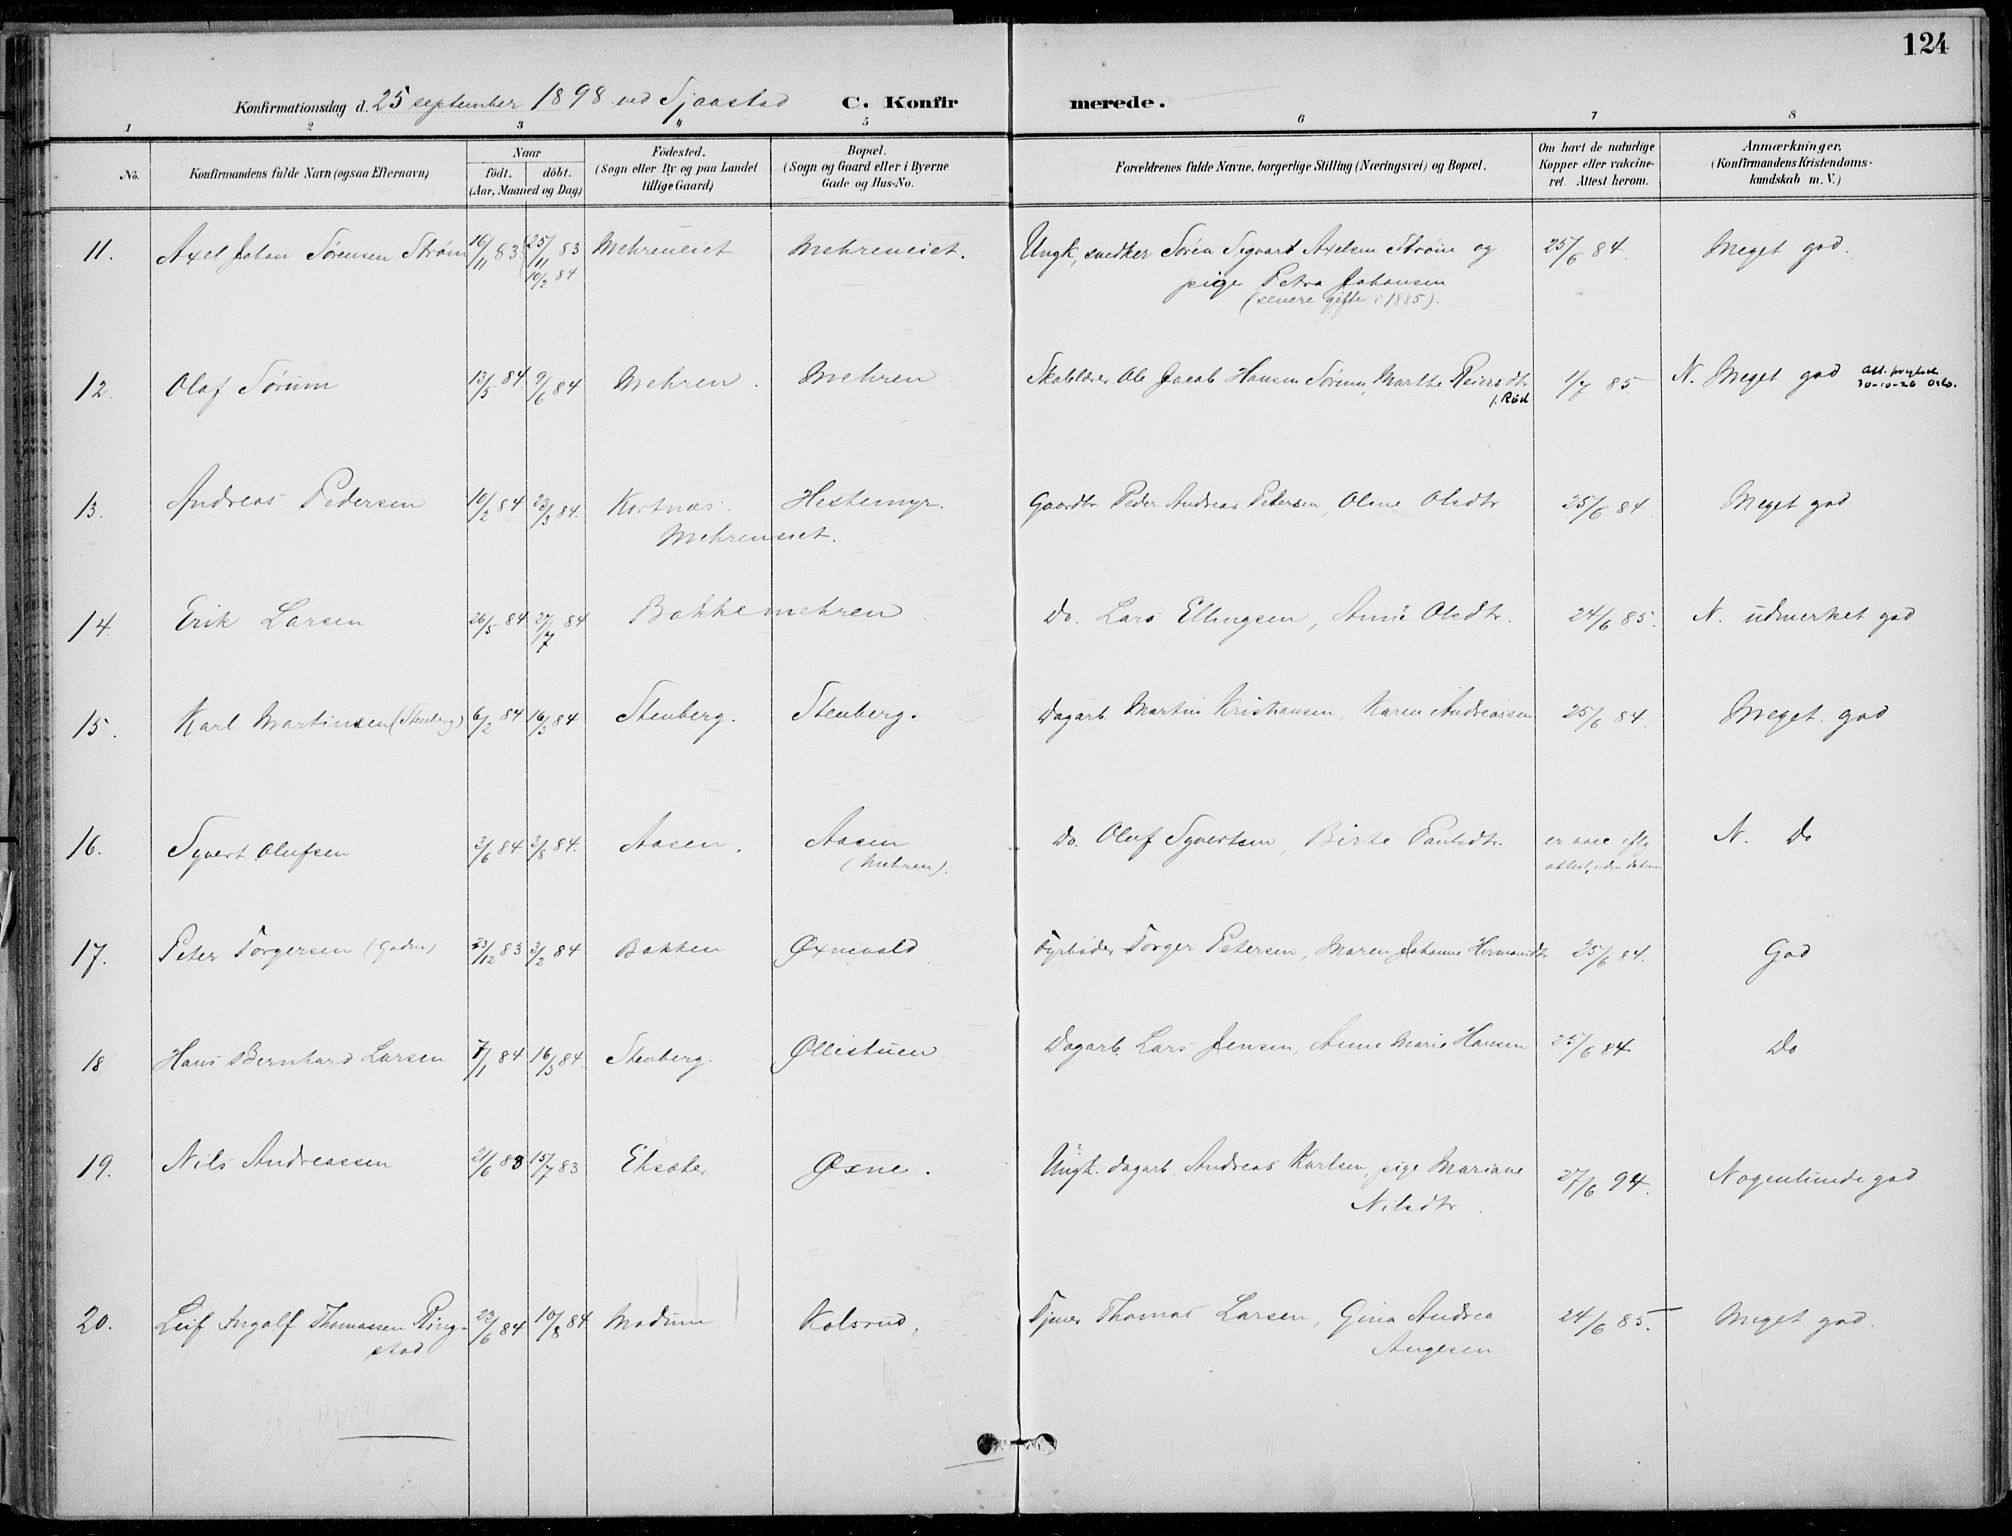 124
Konfirmationsdag d. 25 september 1898 ved Sjaastad C. Konfirmerede.
1 2 3 4 5 6 7 8
No. Konfirmandens fulde Navn (ogsaa Efternavn) Naar født. døbt. (Aar, Maaned og Dag) Fødested. (Sogn eller By og paa Landet tillige Gaard) Bopæl. (Sogn og Gaard eller i Byerne Gade og Hus-No. Forældrenes fulde Navne, borgerlige Stilling (Næringsvei) og Bopæl. Om havt de naturlige Kopper eller vakcineret. Attest herom. Anmærkninger, (Konfirmandens Kristendomskundskab m. V.)
11. Axel Johan Sørensen Strøm 16/11 83 25/11 83 Mehreneiet Mehreneiet. Ungk, snedker Søren Sigvart Axelsen Strøm og 25/6 84. Meget god.
10/2 84 pige Petra Johansen
(senere gifte i 1885).
12. Olaf Sørum 13/5 84 9/6 84 Mehren. Mehren Skolelærer Ole Jacob Hansen Sørum, Marthe Reiersdtr 1/7 85 N. Meget god
f. Rød 30-10-26 Oslo.
13. Andreas Pedersen 10/2 84 23/3 84. Kortnæs. Hestemyr. Gaardbr Peder Andreas Petersen, Oline Olsdtr 25/6 84. Meget god
Mehreneiet.
14. Erik Larsen 26/5 84 27/7 84 Bakkemehren Do. Lars Ellingsen, Anne Olsdtr. 24/6 85. N. udmerket god
15. Karl Martinsen (Stenberg) 6/2 84 16/3 84 Stenberg. Stenberg. Dagarb. Martin Kristiansen, Karen Andreassen 25/6 84. Meget god
16. Syvert Olufsen 3/6 84 3/8 84. Aasen. Aasen Do. Oluf Syvertsen, Birte Paulsdtr. er vacc. iflg N. Do
(Mehren). attest, uden datum
17. Peter Torgersen 23/12 83 3/2 84 Bakken Øxnevald Fyrbøder Torger Petersen, Maren Johanne Hermansdtr 25/6 84. God
18 Hans Bernhard Larsen 7/1 84 16/3 84. Stenberg. Øllestuen. Dagarb. Lars Jensen, Anne Marie Hansen 25/6 84 Do
19. Nils Andreassen 21/6 83 15/7 83 Eksæter Øxne. Ungk. dagarb. Andreas Karlsen, pige Mariane 27/6 94. Nogenlunde god
Nilsdtr.
20. Leif Ingolf Thomassen Ring- 22/6 84 10/8 84 Modum Kolsrud, Tjener Thomas Larsen, Gina Andrea 24/6 85. Meget god.
stad Augesen.